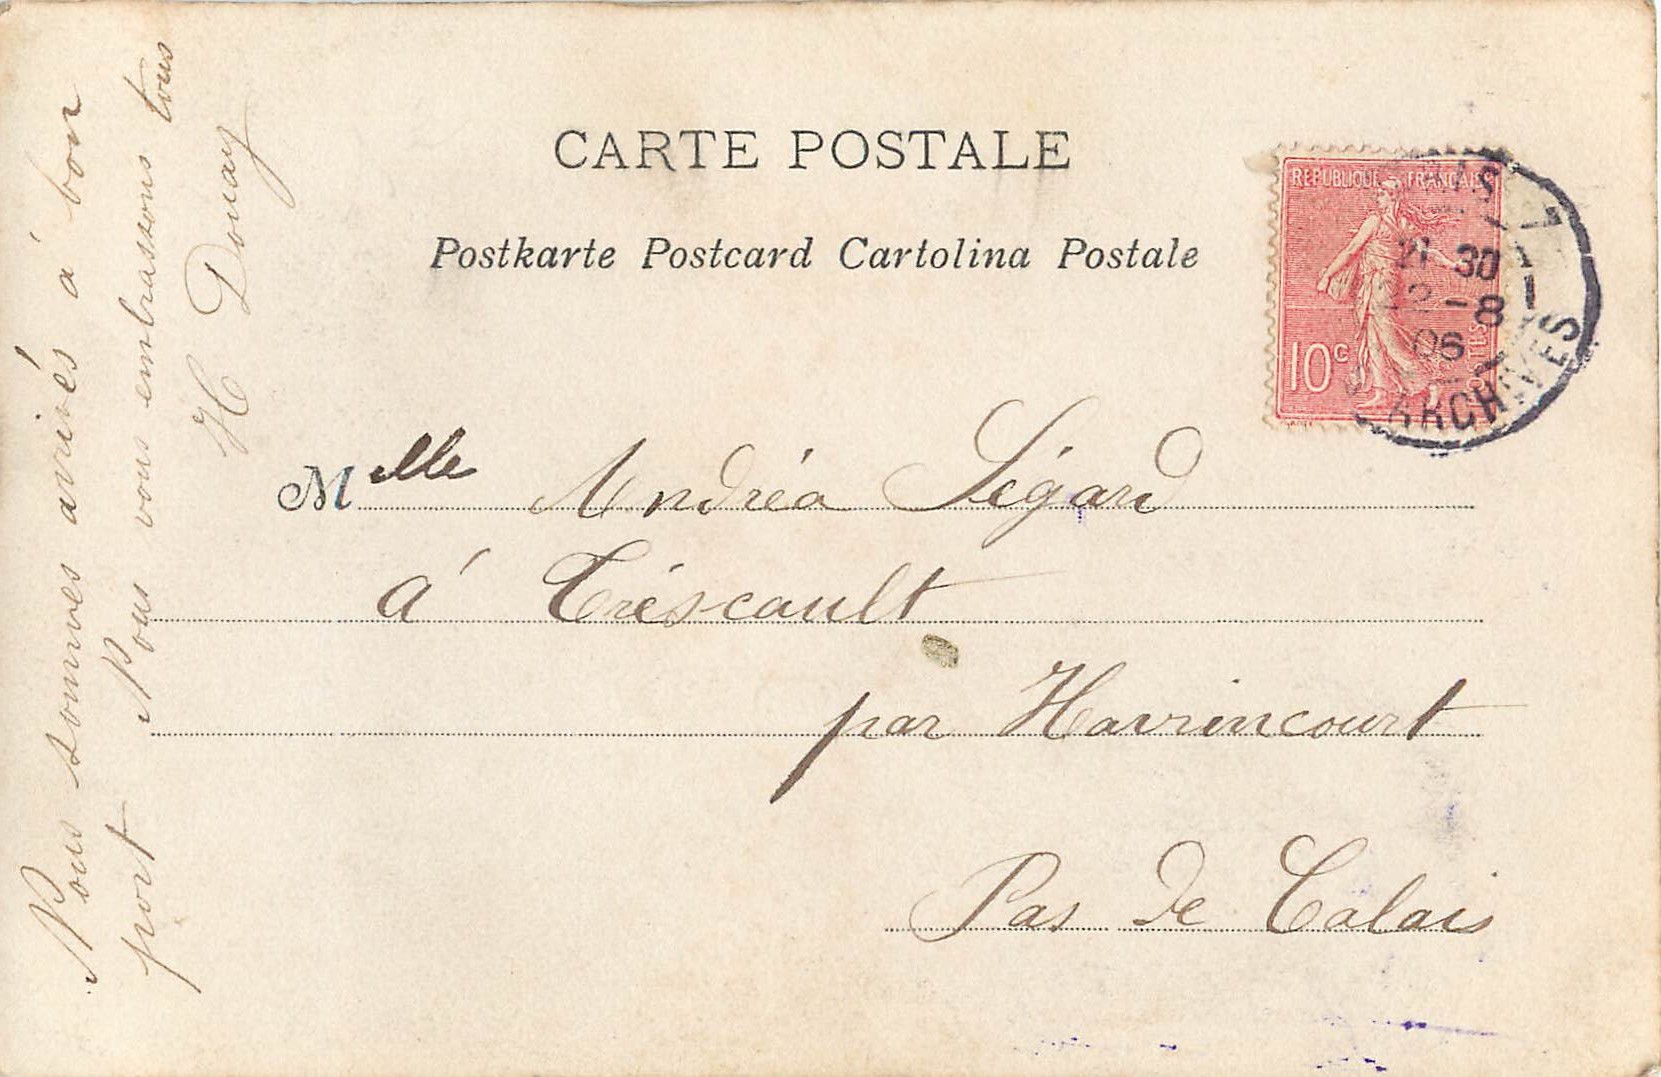 CARTE POSTALE
Postkarte Postcard Cartolina Postale
REPUBLIQUE FRANÇAISE
10c
POSTES
30
2-8
06
ARCHIVES
Melle Andréa Ségard
à Tréscault
par Havrincourt
Pas de Calais
Nous sommes arrivés à bon
port Nous vous embrassons tous
H Douay